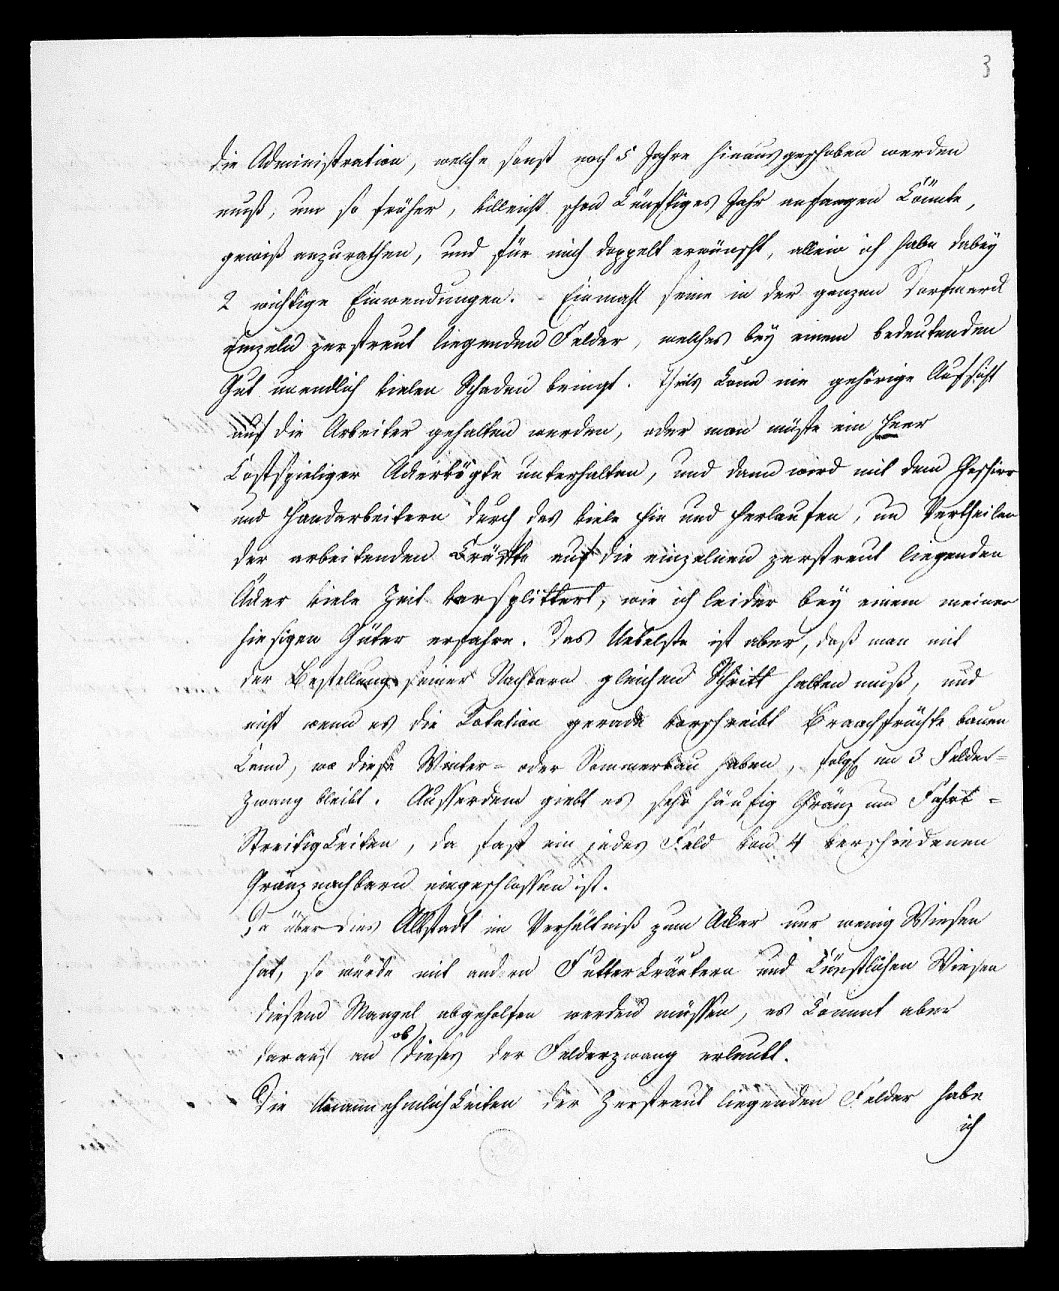 3
die Administration, welche sonst noch 5 Jahre hinausgeschoben werden
muß, um so früher, villeicht schon künftiges Jahr anfangen könnte,
gewiß anzurathen, und für mich doppelt erwünscht, allein ich habe dabey
2 wichtige Einwendungen. Einmahl seine in der ganzen Dorfmark
einzeln zerstreut liegenden Felder, welches bey einem bedeutenden
Gut unendlich vielen Schaden bringt. Theils kann nie gehörige Aufsicht
auf die Arbeiter gehalten werden, oder man müste ein Heer
kostspieliger Ackervögte unterhalten, und dann wird mit dem Geschirr
und Handarbeitern durch das viele hin und herlaufen, un Vertheilen
der arbeitenden Kräfte auf die einzelnen zerstreut liegenden
Äcker viele Zeit versplittert, wie ich leider bey einem meiner
hiesigen Güter erfahre. Das Uebelste ist aber, daß man mit
der Bestellung seiner Nachbarn gleichen Schritt halten muß, und
nicht wenn es die Rotation gerade vorschreibt Braachfrüchte bauen
kann, wo diese Winter- oder Sommerbau haben, folgl. im 3 Felder-
zwang bleibt. Ausserdem giebt es sehr häufig Gränz und Fahrt-
Streitigkeiten, da fast ein jedes Feld von 4 verschiedenen
Gränznachbarn eingeschlossen ist.
Da über dies Allstadt im Verhältniß zum Acker nur wenig Wiesen
hat, so würde mit andern Futterkräutern und künstlichen Wiesen
diesem Mangel abgeholfen werden müssen, es kommt aber
darauf an ob dieses der Felderzwang erlaubt.
Die Unannehmlichkeiten der zerstreut liegenden Felder habe
ich